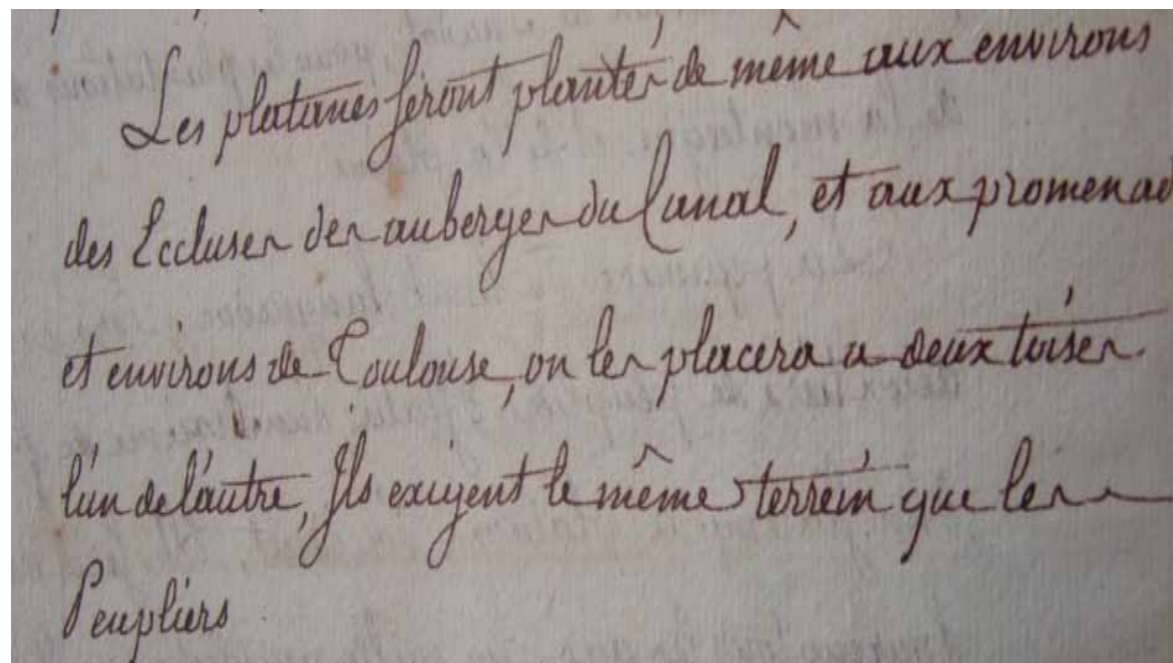 Les platanes seront plantés de même aux environs
des Eccluses des auberges du Canal, et aux promenad
et environs de Toulouse, on les placera a deux toises
l'un de l'autre, Ils exigent le même terrein que les
Peupliers